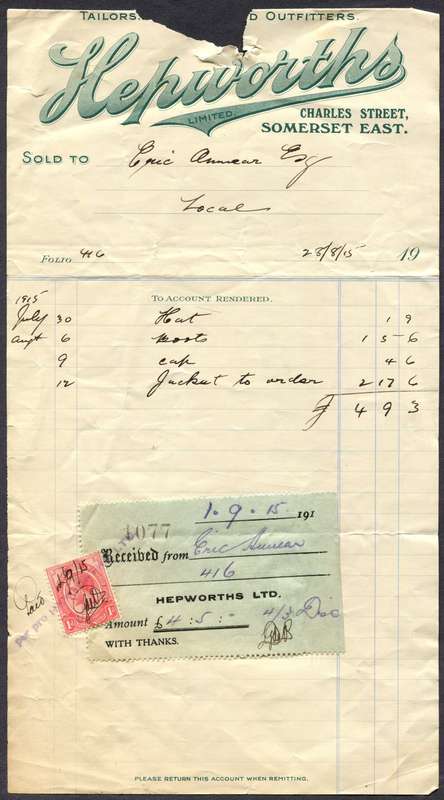 TAILORS, D OUTFITTERS
Hepworths
LIMITED.
CHARLES STREET,
SOMERSET EAST.
SOLD TO Eric Annear Esq
Local
FOLIO 416 28/8/15 19
1915 TO ACCOUNT RENDERED.
July 30 Hat 1 9
Augt 6 Boots 1 5 6
9 cap 4 6
12 Jacket to order 2 17 6
£ 4 9 3
1.9.15 191
1077
Received from Eric Annear
416
HEPWORTHS LTD.
Amount £4:5:- 4/3 Disc
WITH THANKS.
Per pro
PLEASE RETURN THIS ACCOUNT WHEN REMITTING.